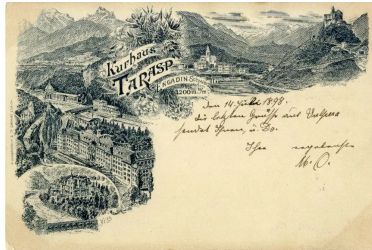 Kurhaus
TARASP
ENGADIN SCHWEIZ
1200 m.
den 14. Juli 1898.
die letzten Grüsse aus Vulpera
sendet Ihnen, u. Co.
Ihre ergebenste
M. O.